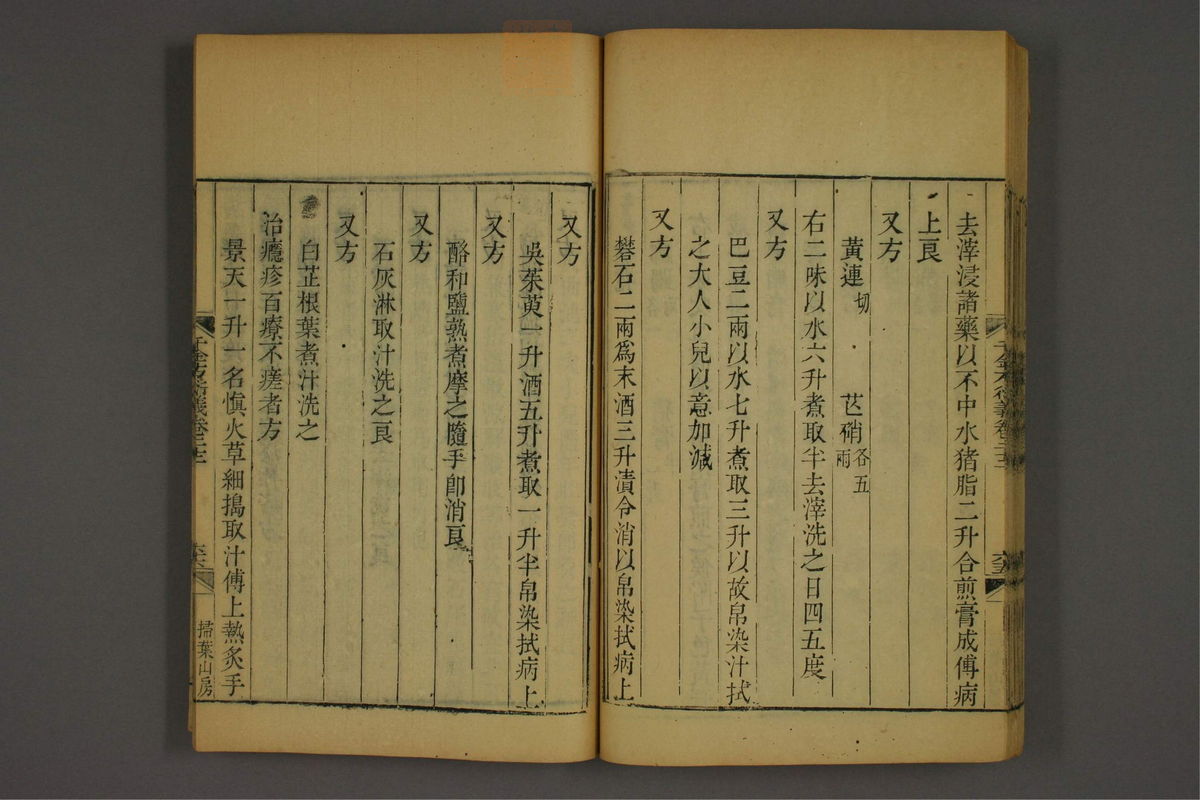 去滓浸諸藥以不中水猪脂二升合煎膏成傅病
上良
又方
黃連切 芒硝各五兩
右二味以水六升煮取半去滓洗之日四五度
又方
巴豆二兩以水七升煮取三升以故帛染汁拭
之大人小兒以意加減
又方
礬石二兩爲末酒三升漬令消以帛染拭病上
又方
吳茱萸一升酒五升煮取一升半帛染拭病上
又方
酪和鹽熟煮摩之隨手卽消良
又方
石灰淋取汁洗之良
又方
白芷根葉煮汁洗之
治癮疹百療不瘥者方
景天一升一名慎火草細搗取汁傅上熱炙手
掃葉山房